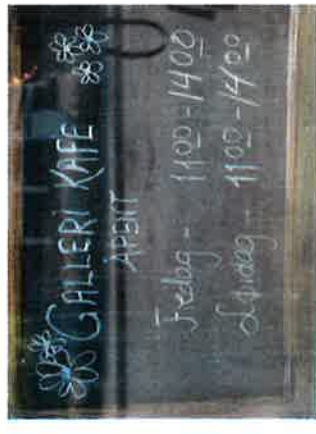 GALLERI KAFE
ÅPENT
Fredag - 11００-14００
Lørdag - 11００-14００